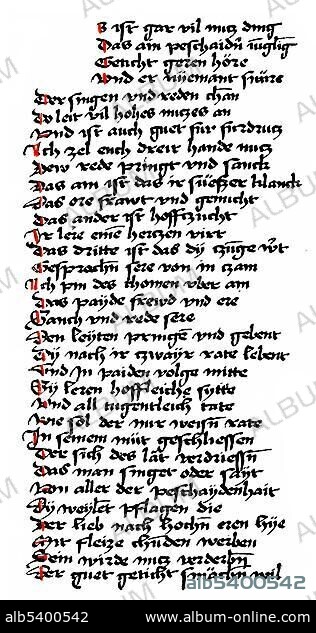 S ist gar vil nutz ding
Das ain peschaidn iungling
Geticht geren höre
Vnd er niemant
Der singen vnd reden chan
Do leit vil hohes nutzes an
Vnd ist auch guet für
Ich zel euch dreir hande nutz
Dew rede pringt vnd sanck
Das ain ist das ir süesser klanck
Das ore frawt vnd gemuet
Das ander ist hofftzucht
Ir lere einē hertzen
Das dritte ist das dy tzunge
Gesprochn sere von in
Ich pin des chomen vber ain
Das payde frewd vnd ere
Sanck vnd rede sere
Den lewten pringē vnd gebent
Dy nach ir tzwayr rate lebent
Vnd In paiden volge mitte
By leren hoffleiche sytte
Vnd all tugentleich tate
Wie sol der mir weisn rate
In seinem müt geschliessen
Der sich des lat verdriessn
Das man singet oder sayt
Von aller der peschaydenhait
Dy weylet pflagen die
Der lieb nach hochn eren hye
Mit fleize chunden werben
Sein wirde mus verderbn
Der guet geticht wil
ALBUM
alb5400542
alb5400542
www.album-online.com